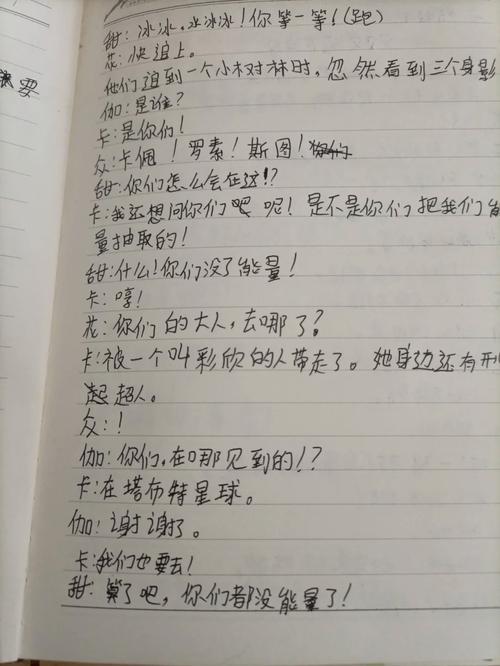 甜:冰冰,水冰冰!你等一等!(跑)
花:快追上。
他们追到一个小树林时,忽然看到三个身影
伽:是谁?
卡:是你们!
众:卡佩!罗素!斯图!
甜:你们怎么会在这!?
卡:我还想问你们吧呢!是不是你们把我们能
量抽取的!
甜:什么!你们没了能量!
卡:哼!
花:你们的大人,去哪了?
卡:被一个叫彩欣的人带走了。她身边还有刑
起超人。
众:!
伽:你们,在哪见到的!?
卡:在塔布特星球。
伽:谢谢了。
卡:我们也要去!
甜:算了吧,你们都没能量了!